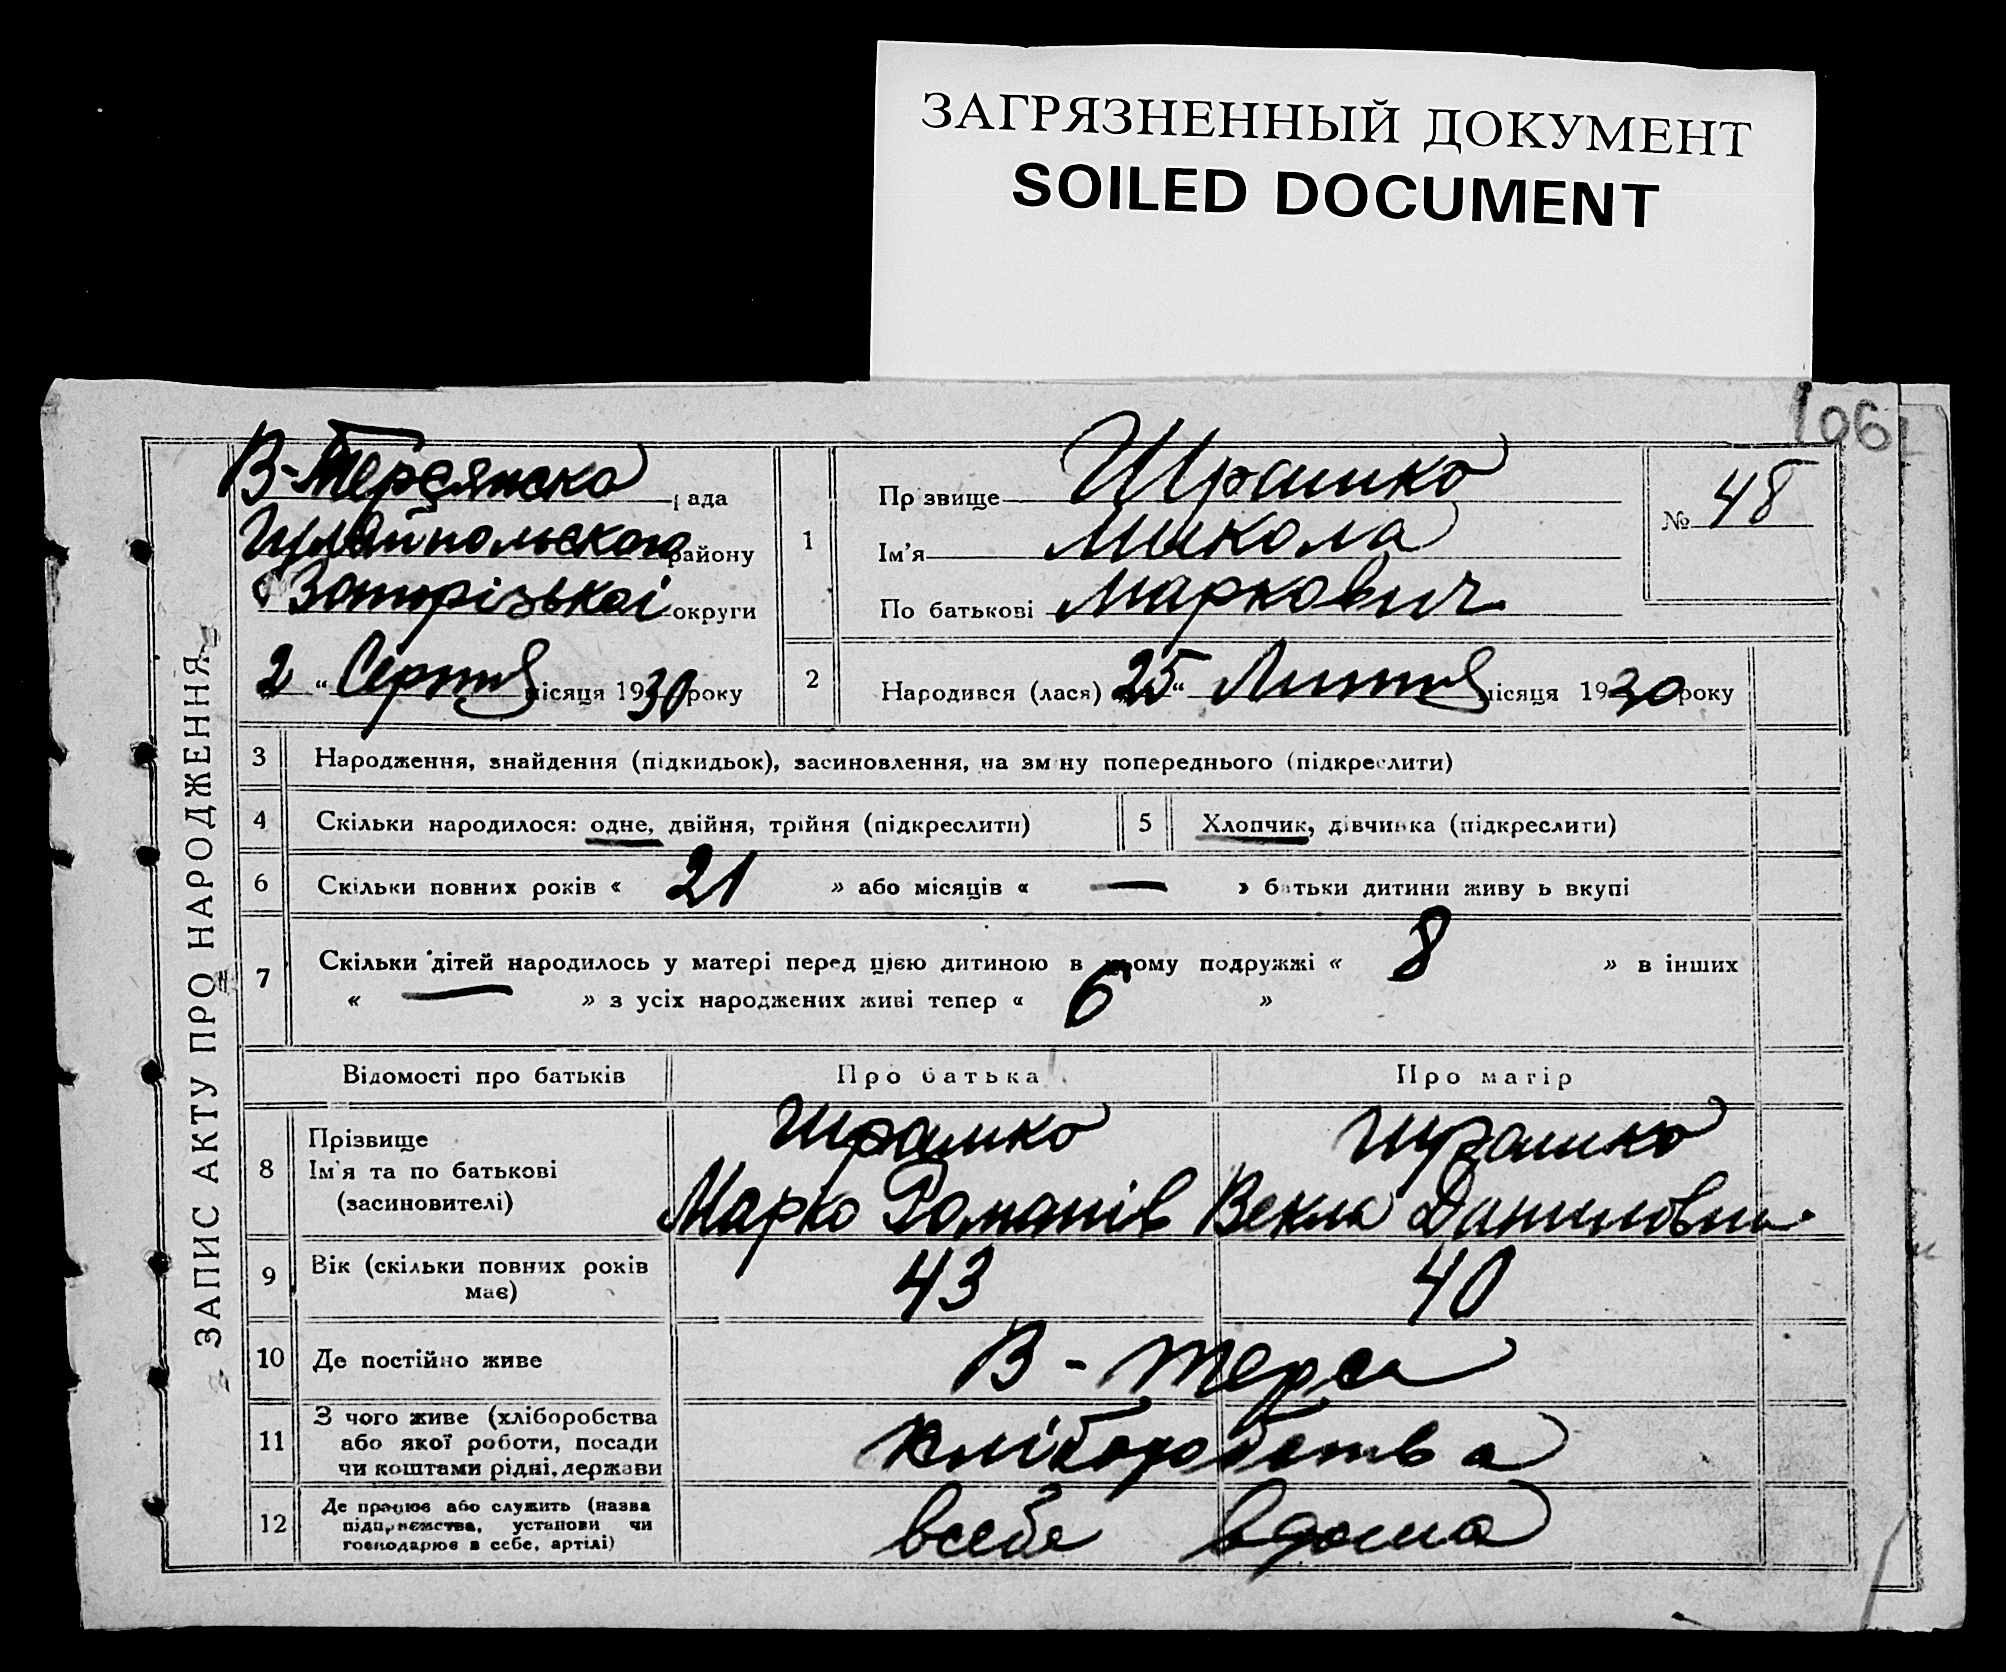 ЗАГРЯЗНЕННЫЙ ДОКУМЕНТ
SOILED DOCUMENT
106
ЗАПИС АКТУ ПРО НАРОДЖЕННЯ
В-Терсянска рада
Гуляйпольского району
Запорізької округи
2 " Серпня місяця 1930 року
1
Прізвище Шрамко
Ім'я Микола
По батькові Маркович
№ 48
2
Народився (лася) „25" Липня місяця 1930 року
3 Народження, знайдення (підкидьок), засиновлення, на зміну попереднього (підкреслити)
4 Скільки народилося: одне, двійня, трійня (підкреслити)
5 Хлопчик, дівчинка (підкреслити)
6 Скільки повних років « 21 » або місяців « — » батьки дитини живуть вкупі
7 Скільки дітей народилось у матері перед цією дитиною в цьому подружжі « 8 » в інших
« — » з усіх народжених живі тепер « 6 »
Відомості про батьків Про батька Про матір
8 Прізвище Шрамко Шрамко
Ім'я та по батькові Марко Романів Векла Даниловна
(засиновителі)
9 Вік (скільки повних років 43 40
має)
10 Де постійно живе В-Терса
11 З чого живе (хліборобства хліборобства
або якої роботи, посади
чи коштами рідні, держави
12 Де працює або служить (назва всебе вдома
підприємства, установи чи
господарює в себе, артілі)